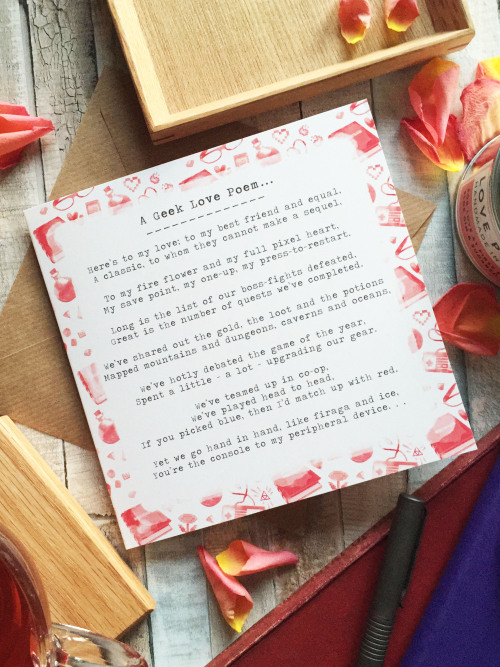 A Geek Love Poem...
Here's to my love; to my best friend and equal.
A classic, to whom they cannot make a sequel.
To my fire flower and my full pixel heart,
My save point, my one-up, my press-to-restart.
Long is the list of our boss-fights defeated,
Great is the number of quests we've completed.
We've shared out the gold, the loot and the potions
Mapped mountains and dungeons, caverns and oceans,
We've hotly debated the game of the year,
Spent a little - a lot - upgrading our gear.
We've teamed up in co-op,
We've played head to head,
If you picked blue, then I'd match up with red.
Yet we go hand in hand, like firaga and ice,
You're the console to my peripheral device...
LOVE